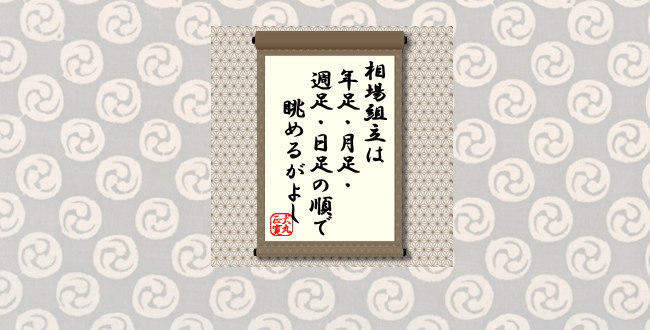 相場組立は
年足・月足・
週足・日足の順で
眺めるがよし